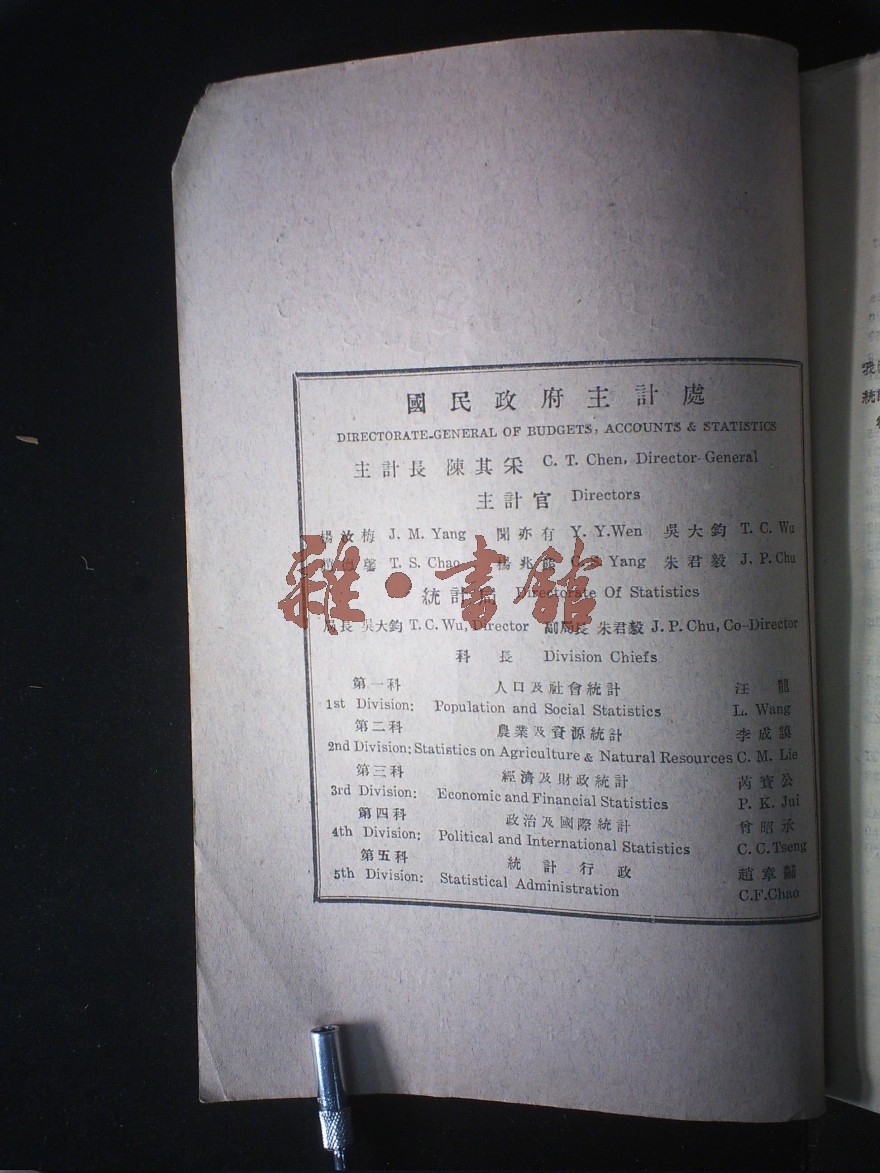 國民政府主計處
DIRECTORATE-GENERAL OF BUDGETS, ACCOUNTS & STATISTICS
主計長 陳其采 C. T. Chen, Director-General
主計官 Directors
楊汝梅 J. M. Yang 聞亦有 Y. Y. Wen 吳大鈞 T. C. Wu
T. S. Chao 楊兆 Yang 朱君毅 J. P. Chu
統計局 Directorate Of Statistics
局長 吳大鈞 T. C. Wu, Director 副局長 朱君毅 J. P. Chu, Co-Director
科長 Division Chiefs
第一科 人口及社會統計 汪龍
1st Division: Population and Social Statistics L. Wang
第二科 農業及資源統計 李成謨
2nd Division: Statistics on Agriculture & Natural Resources C. M. Lie
第三科 經濟及財政統計 芮寶公
3rd Division: Economic and Financial Statistics P. K. Jui
第四科 政治及國際統計 曾昭承
4th Division: Political and International Statistics C. C. Tseng
第五科 統計行政 趙章黼
5th Division: Statistical Administration C. F. Chao
雜·書館